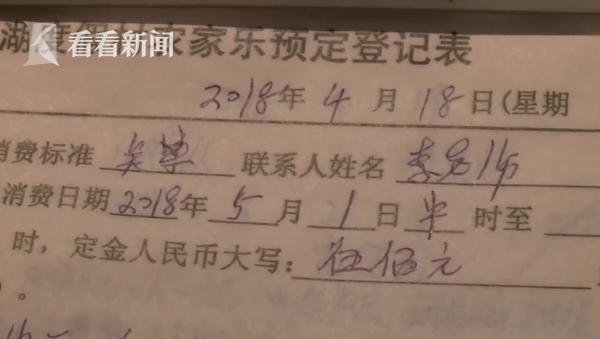 看看新闻
湖度假村农家乐预定登记表
2018年 4 月 18日(星期
消费标准 点单 联系人姓名 李
消费日期2018年 5 月 1 日 中 时至
时，定金人民币大写：伍佰元
)。